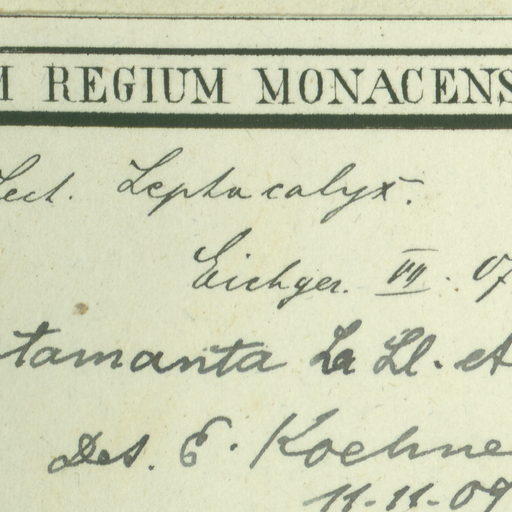 M REGIUM MONACENS
Sect. Leptocalyx.
Eichger. VII. 07
tamanta La Ll. et
Det. E. Koehne
11-11-09